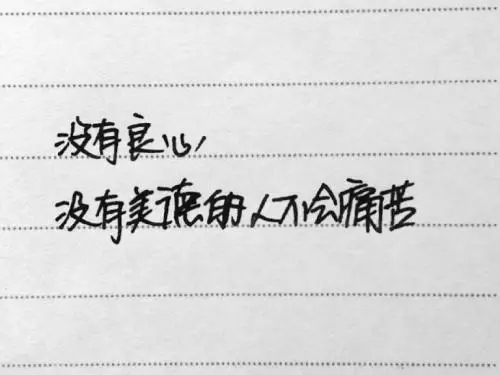 没有良心,
没有美德的人不会痛苦